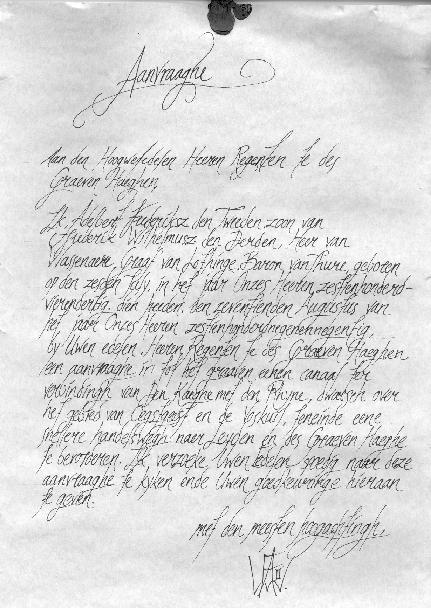 Aanvraaghe
Aan den Hoogweledelen Heeren Regenten te des
Graeven Haeghen,
Ik Adelbert Fredericksz den Tweeden zoon van
Frederick Wilhelmusz den Derden, Heer van
Wassenaere, Graaf van Baron van geboren
op den july, in het jaar Onzes Heeren zestienhonderd-
vierenbertig den heeden, den zeventienden Augustus van
het jaar Onzes Heeren zestienhonderdnegenennegentig,
by Uwen edelen, Heeren Regenten te des Graeven Haeghen
een aanvraaghe in tot het graaven eenen canaal ter
verbindingh van den Kaeghe met den Rhyne, dwarsch over
het gebied van Oegstgeest en de Voskuil, teneinde eene
snellere handelswegh naer Leyden en des Graeven Haeghe
te Ik verzoeke Uwen edelen goedig naer deze
aanvraaghe te kyken ende Uwen goedkeuringe hieraan
te geven.
met den meesten hoogachtingh,